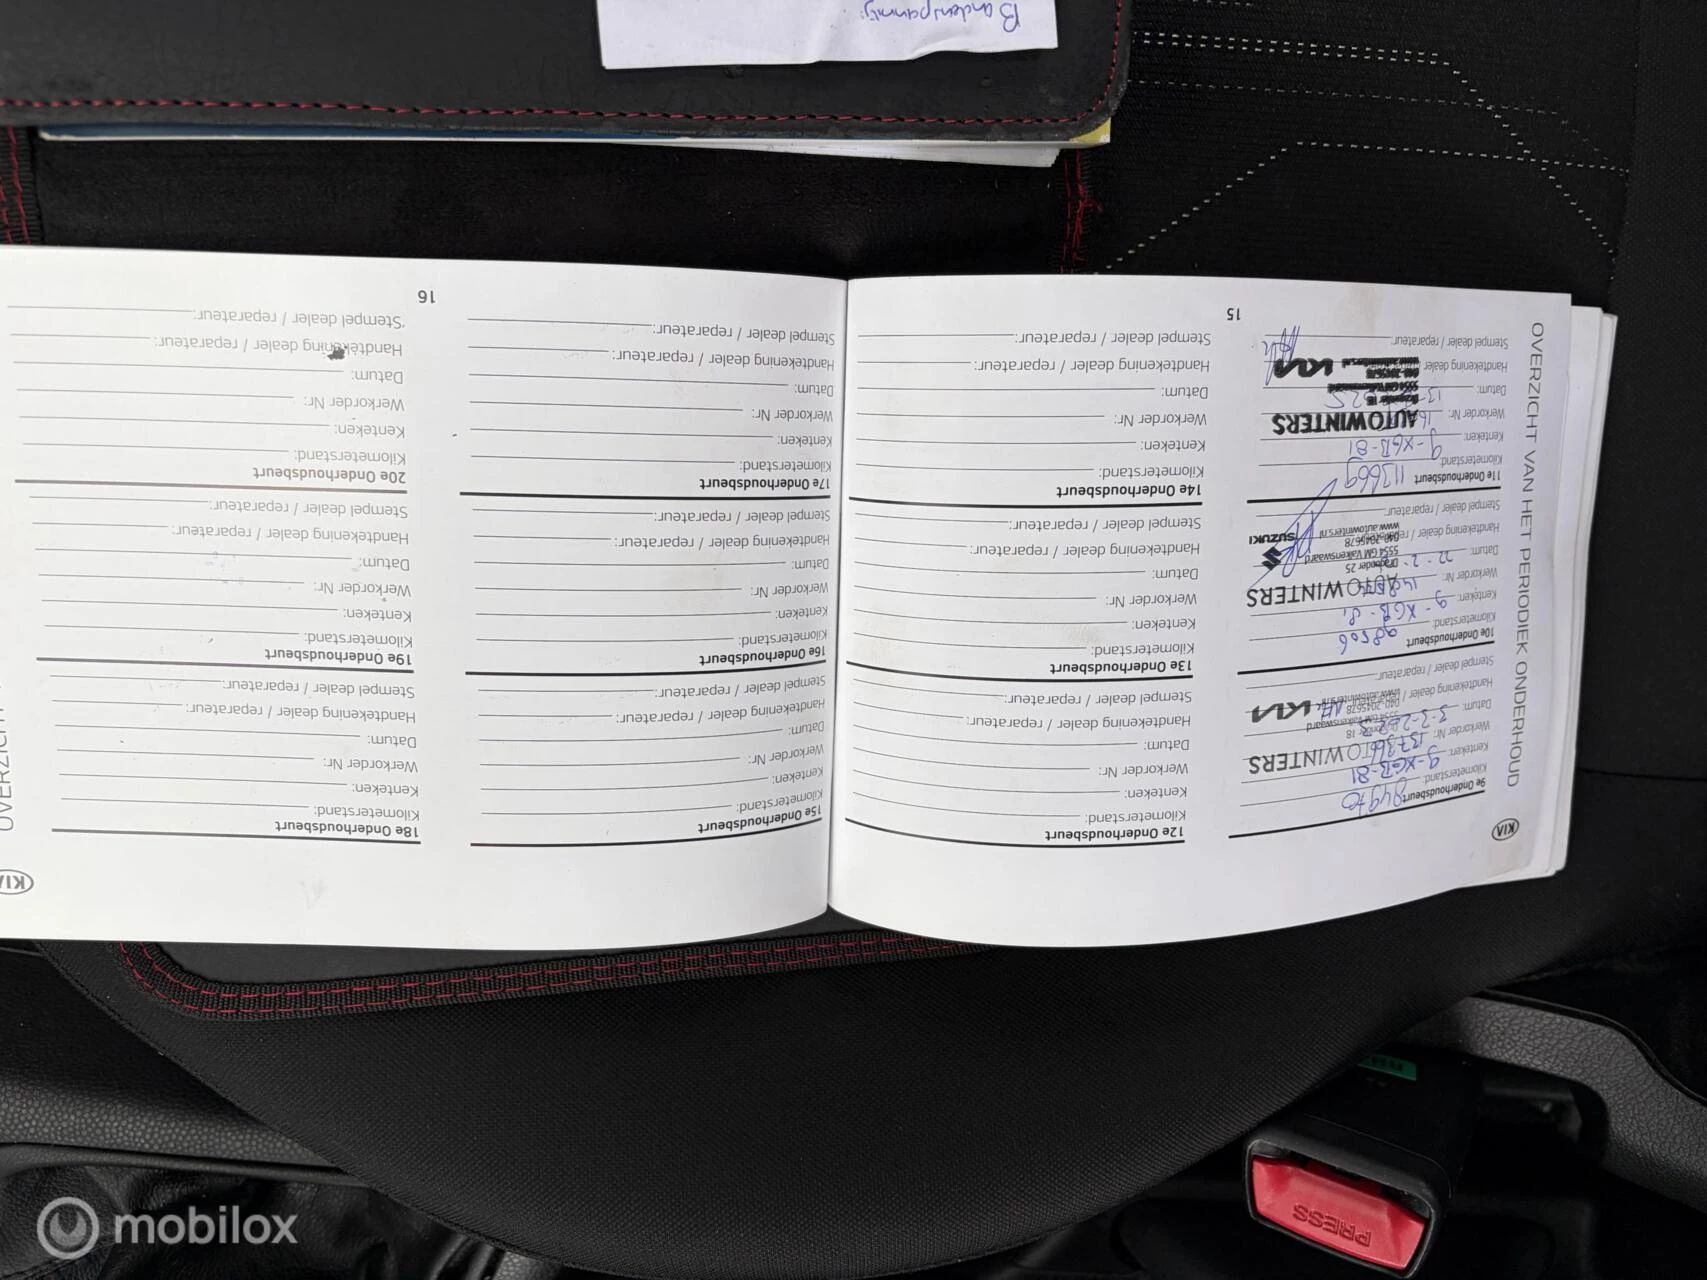 Bandenspanning
OVERZICHT VAN HET PERIODIEK ONDERHOUD
KIA
9e Onderhoudsbeurt
Kilometerstand: 84970
Kenteken: 9-XGB-81
Werkorder Nr: 137366
Datum:
Handtekening dealer /
Stempel dealer / reparateur:
AUTOWINTERS
5554 GM Valkenswaard
040-2045678
KIA
10e Onderhoudsbeurt
Kilometerstand: 98506
Kenteken: 9-XGB-81
Werkorder Nr:
Datum:
Handtekening dealer /
Stempel dealer / reparateur:
AUTOWINTERS
Dragonder 25
5554 GM Valkenswaard
040-2045678
www.autowinters.nl
SUZUKI
11e Onderhoudsbeurt
Kilometerstand: 113669
Kenteken: 9-XGB-81
Werkorder Nr:
Datum:
Handtekening dealer
Stempel dealer / reparateur:
AUTOWINTERS
KIA
15
12e Onderhoudsbeurt
Kilometerstand:
Kenteken:
Werkorder Nr:
Datum:
Handtekening dealer / reparateur:
Stempel dealer / reparateur:
13e Onderhoudsbeurt
Kilometerstand:
Kenteken:
Werkorder Nr:
Datum:
Handtekening dealer / reparateur:
Stempel dealer / reparateur:
14e Onderhoudsbeurt
Kilometerstand:
Kenteken:
Werkorder Nr:
Datum:
Handtekening dealer / reparateur:
Stempel dealer / reparateur:
15e Onderhoudsbeurt
Kilometerstand:
Kenteken:
Werkorder Nr:
Datum:
Handtekening dealer / reparateur:
Stempel dealer / reparateur:
16e Onderhoudsbeurt
Kilometerstand:
Kenteken:
Werkorder Nr:
Datum:
Handtekening dealer / reparateur:
Stempel dealer / reparateur:
17e Onderhoudsbeurt
Kilometerstand:
Kenteken:
Werkorder Nr:
Datum:
Handtekening dealer / reparateur:
Stempel dealer / reparateur:
16
KIA
OVERZICHT
18e Onderhoudsbeurt
Kilometerstand:
Kenteken:
Werkorder Nr:
Datum:
Handtekening dealer / reparateur:
Stempel dealer / reparateur:
19e Onderhoudsbeurt
Kilometerstand:
Kenteken:
Werkorder Nr:
Datum:
Handtekening dealer / reparateur:
Stempel dealer / reparateur:
20e Onderhoudsbeurt
Kilometerstand:
Kenteken:
Werkorder Nr:
Datum:
Handtekening dealer / reparateur:
Stempel dealer / reparateur:
PRESS
mobilox